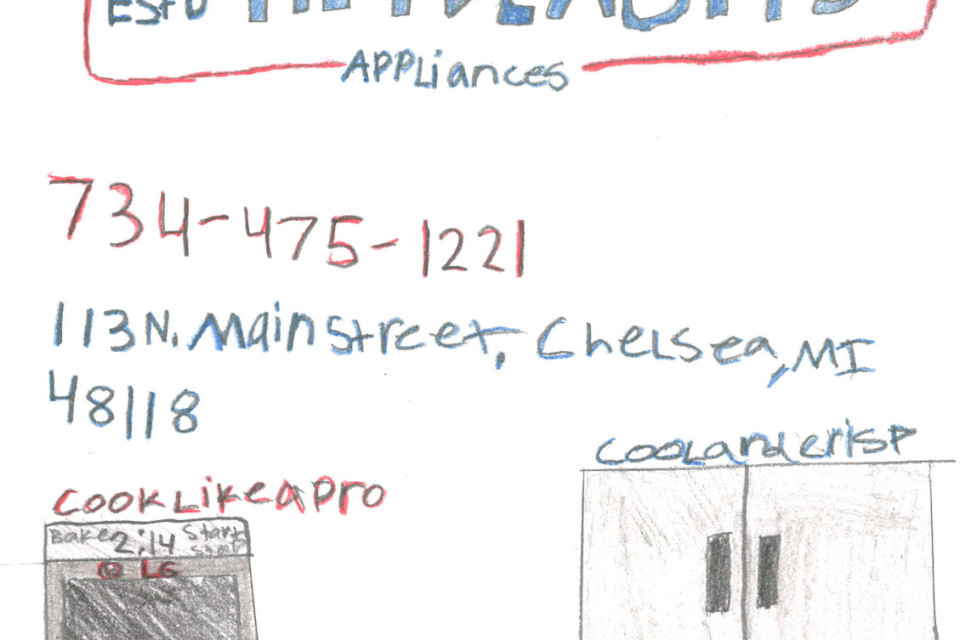 ESTD
APPLiances
734-475-1221
113 N. Main street, Chelsea, MI
48118
COOLandcrisp
COOKLikeaPRO
Bake 2:14 Start
LG